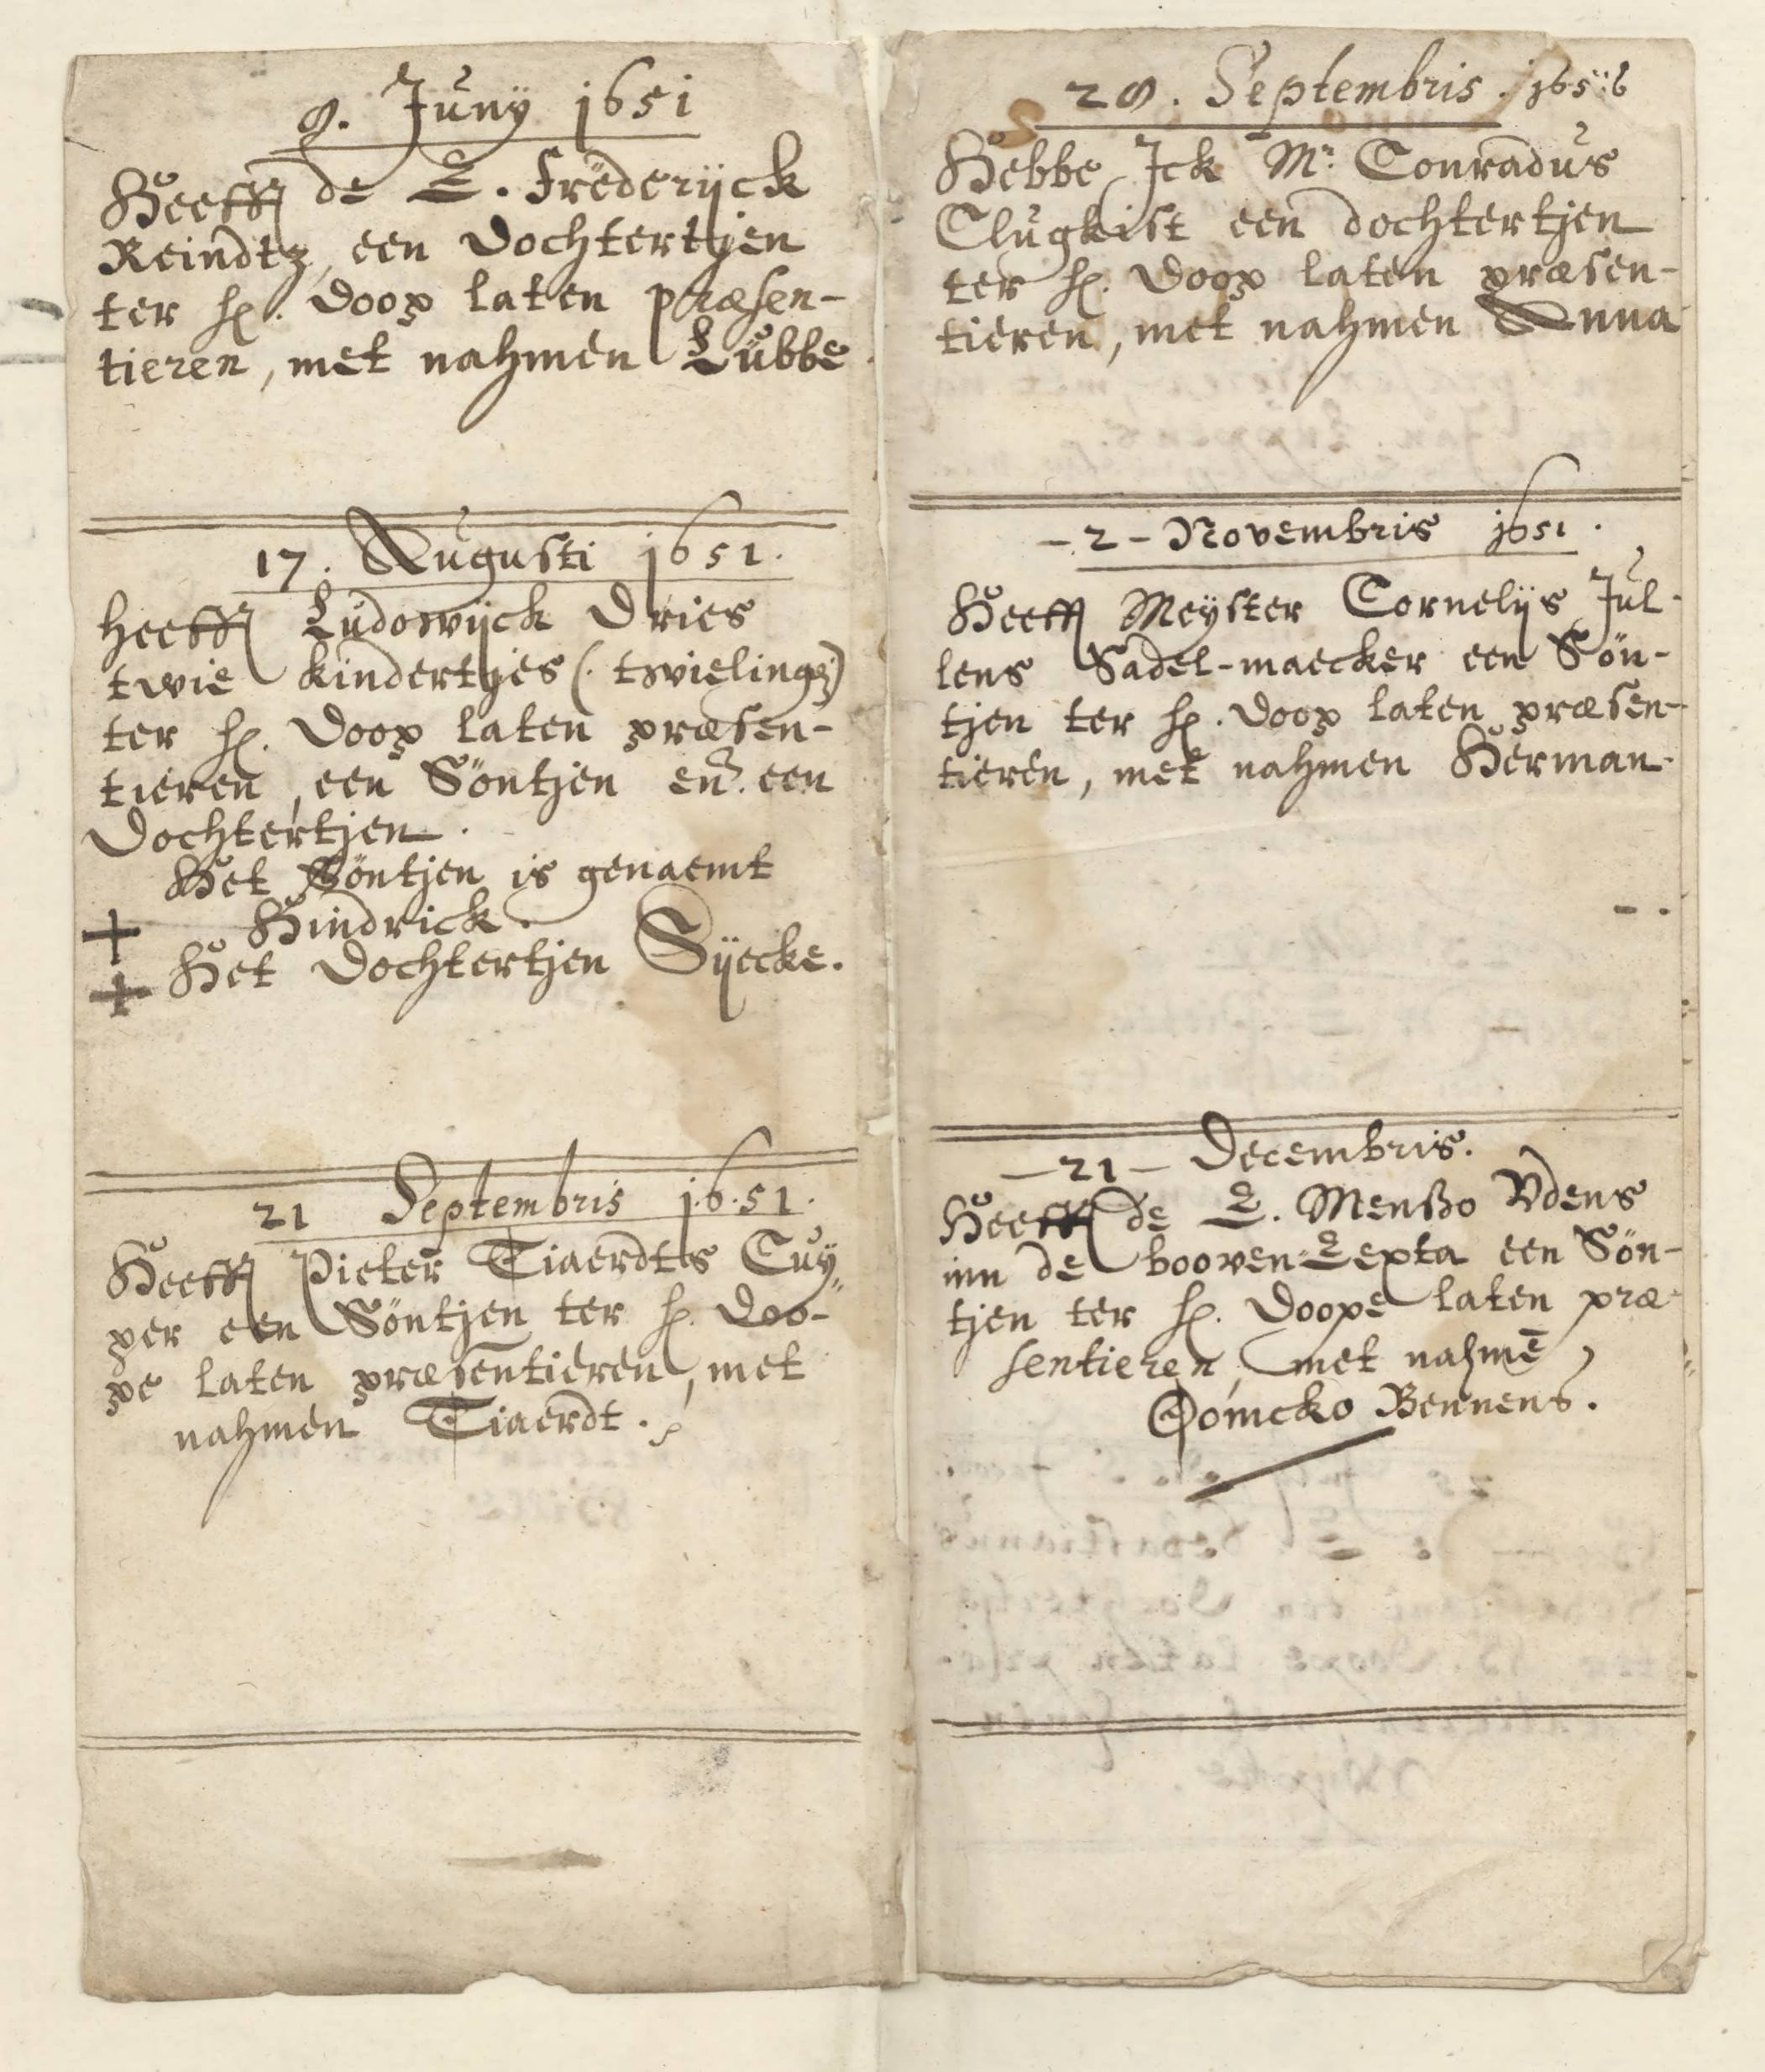 8. Junÿ 1651
Heefft de E. Frederijck
Reindtz, een Dochtertjen
ter H. Doop laten præsen-
tieren, met nahmen Lubbe
17. Augusti 1651.
heefft Ludowijck Dries
twie kindertjes (. twielinge.)
ter H. Doop laten præsen-
tieren, een Söntjen en. een
Dochtertjen.
Het Söntjen is genaemt
Hindrick.
Het Dochtertjen Sijecke.
21 Septembris 16.51.
Heefft Pieter Tiaerdts Cuy-
per een Söntjen ter H. Doo-
pe laten præsentieren, met
nahmen Tiaerdt.
28. Septembris.
Hebbe Ick Mr. Conradus
Clugkist een dochtertjen
ter H. Doop laten præsen-
tieren, met nahmen Anna
- 2 - Novembris 1651.
Heefft Meyster Cornelijs Jul-
lens Sadel-maecker een Sön-
tjen ter H. Doop laten præsen-
tieren, met nahmen Herman.
- 21 - Decembris.
Heefft de E. Menßo Vdens
inn de booven-Lexta een Sön-
tjen ter H. Doope laten præ-
sentieren, met nahmē
Oomcko Bennens.